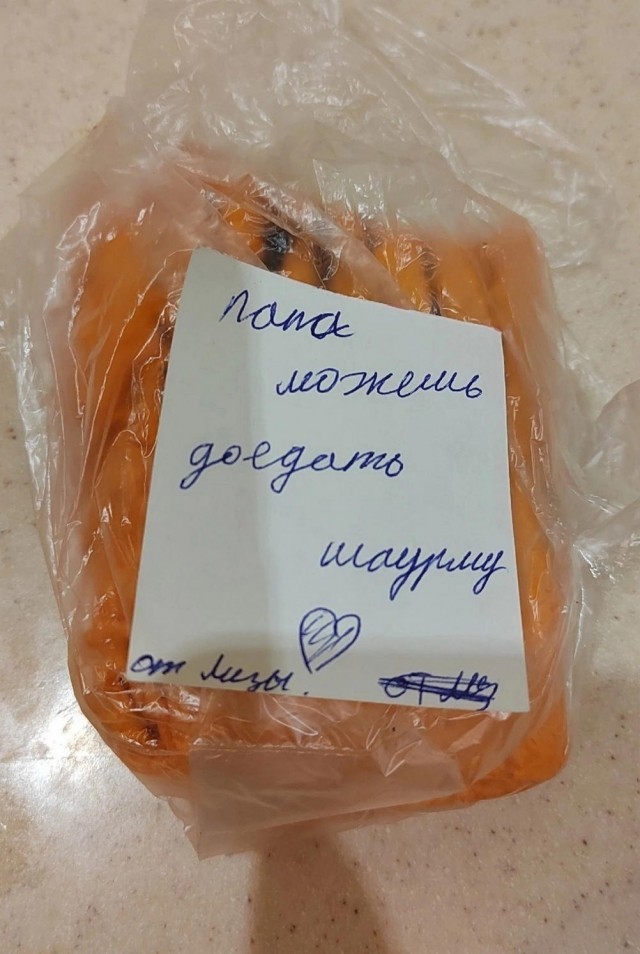 папа
можешь
доедать
шаурму
от Лизы.